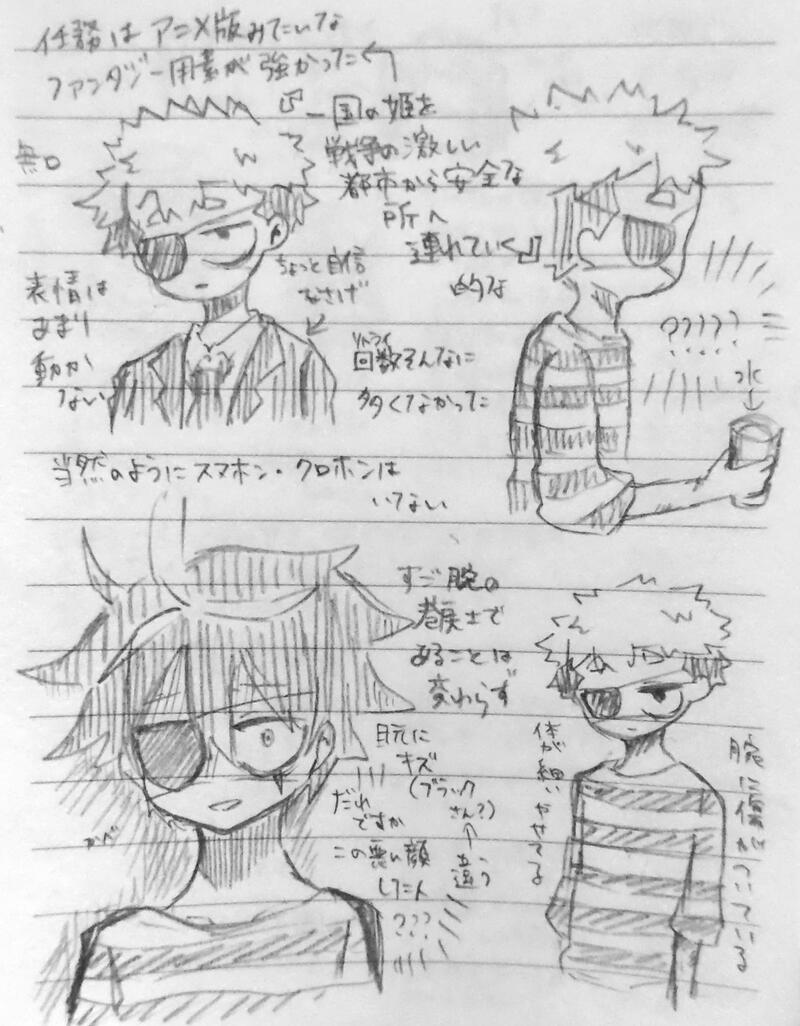 任務はアニメ版みたいな
ファンタジー要素が強かった
一国の姫を
戦争の激しい
都市から安全な
所へ
連れていく
的な
無口
表情は
あまり
動か
ない
ちょっと自信
なさげ
リトライ
回数そんなに
多くなかった
?????
水
当然のようにスマホン・クロホンは
いてない
すご腕の
巻戻士で
あることは
変わらず
目元に
キズ
(ブラック
さん?)
違う
だれ
ですか
この悪い顔
した人
???
かべ
体が細い やせてる
腕に傷がついている